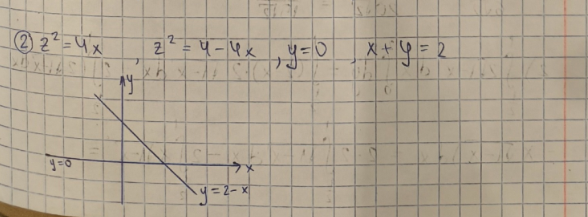 ② z² = 4x, z² = 4 - 4x, y = 0, x + y = 2
y
y=0
x
y = 2 - x